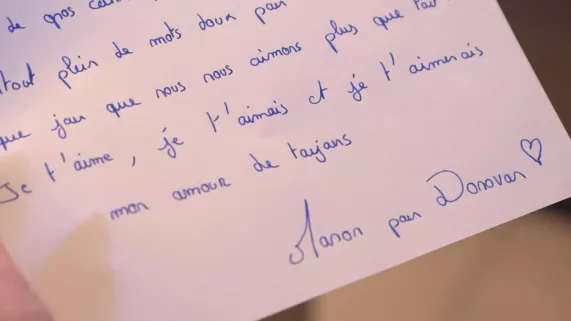 de gros
tout plein de mots doux par
que jou que nous nous aimons plus que tout
Je t'aime, je t'aimais et je t'aimerais
mon amour de toujours
Manon par Donovan ♡